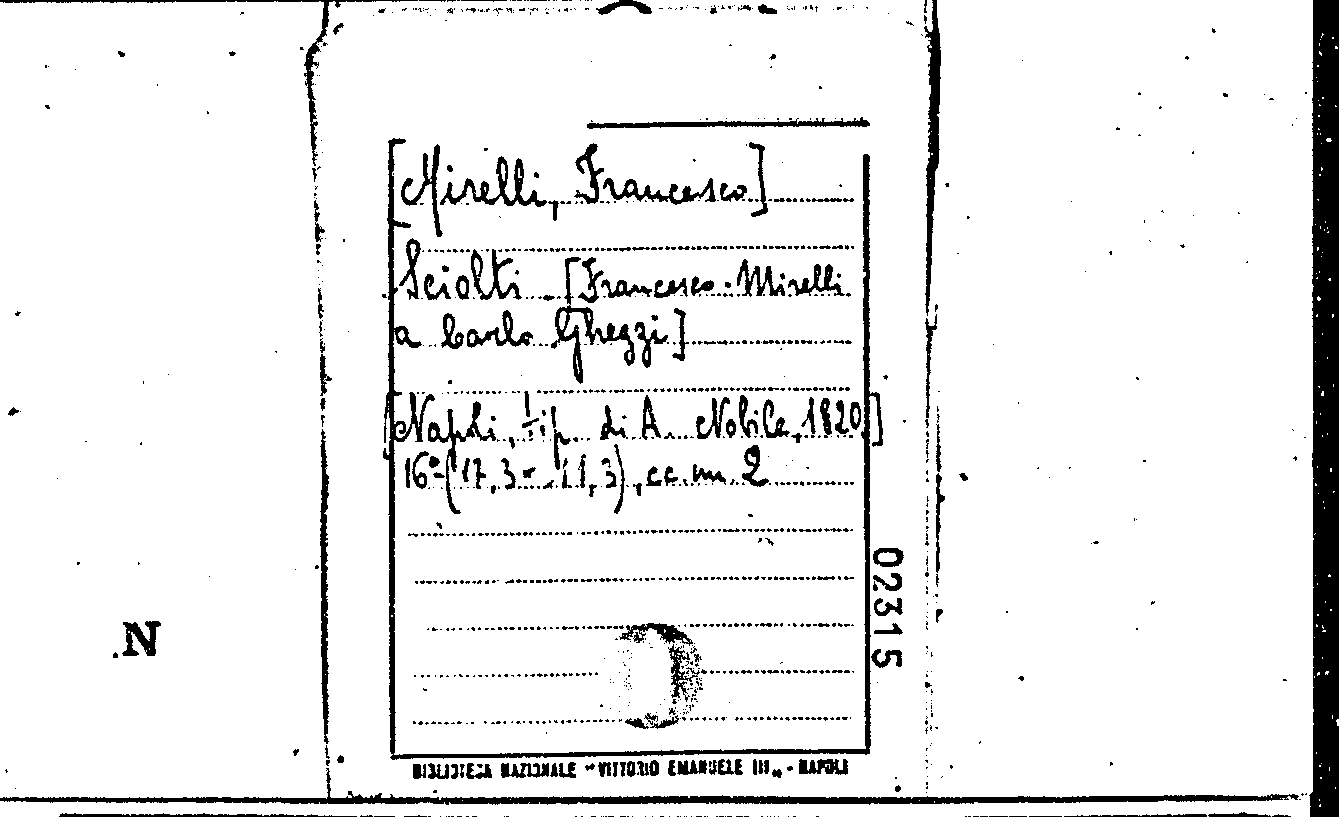 [Mirelli, Francesco]
Sciolti. [Francesco Mirelli
a Carlo Ghezzi]
[Napoli, tip. di A. Nobile, 1820]
16° (17,3 x 11,3), cc. nn. 2
02315
N
BIBLIOTECA NAZIONALE "VITTORIO EMANUELE III" - NAPOLI